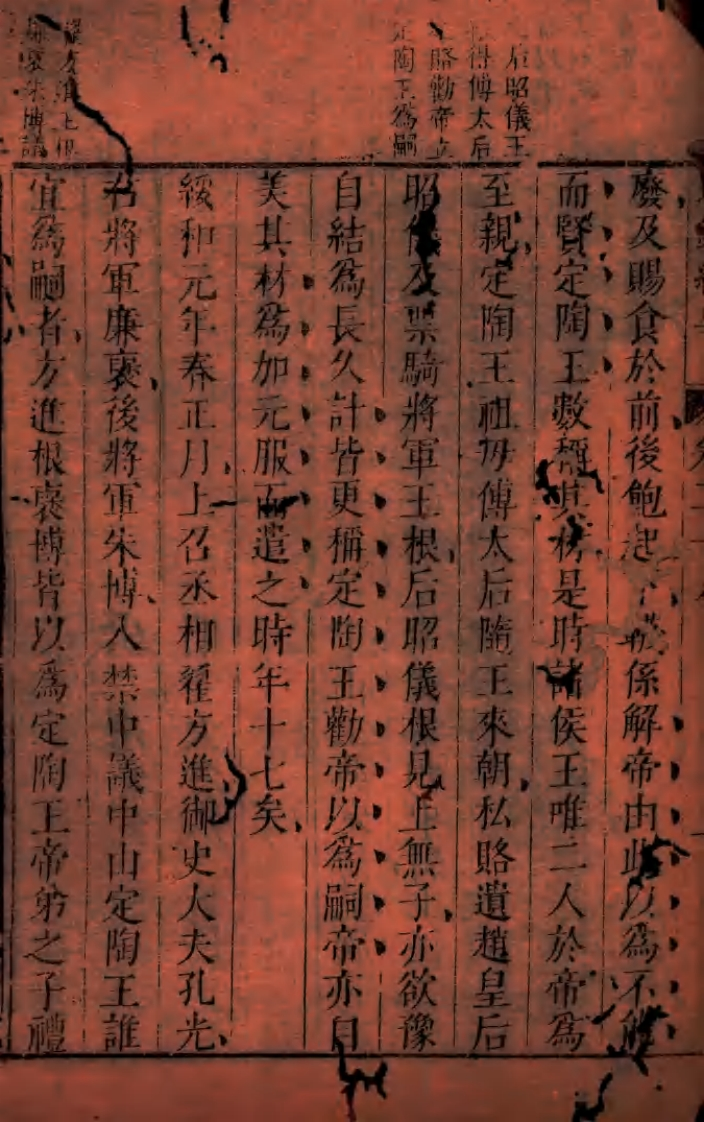 后昭儀王
得傅太后
賂勸帝立
定陶王為嗣
翟方進王根
廉褒朱博議
廢及賜食於前後飽起係解帝由此以為不能
而賢定陶王數稱其材是時諸侯王唯二人於帝為
至親定陶王祖母傅太后隨王來朝私賂遺趙皇后
昭儀及票騎將軍王根后昭儀根見上無子亦欲豫
自結為長久計皆更稱定陶王勸帝以為嗣帝亦自
美其材為加元服而遣之時年十七矣
綏和元年春正月上召丞相翟方進御史大夫孔光
右將軍廉褒後將軍朱博入禁中議中山定陶王誰
宜為嗣者方進根褒博皆以為定陶王帝弟之子禮